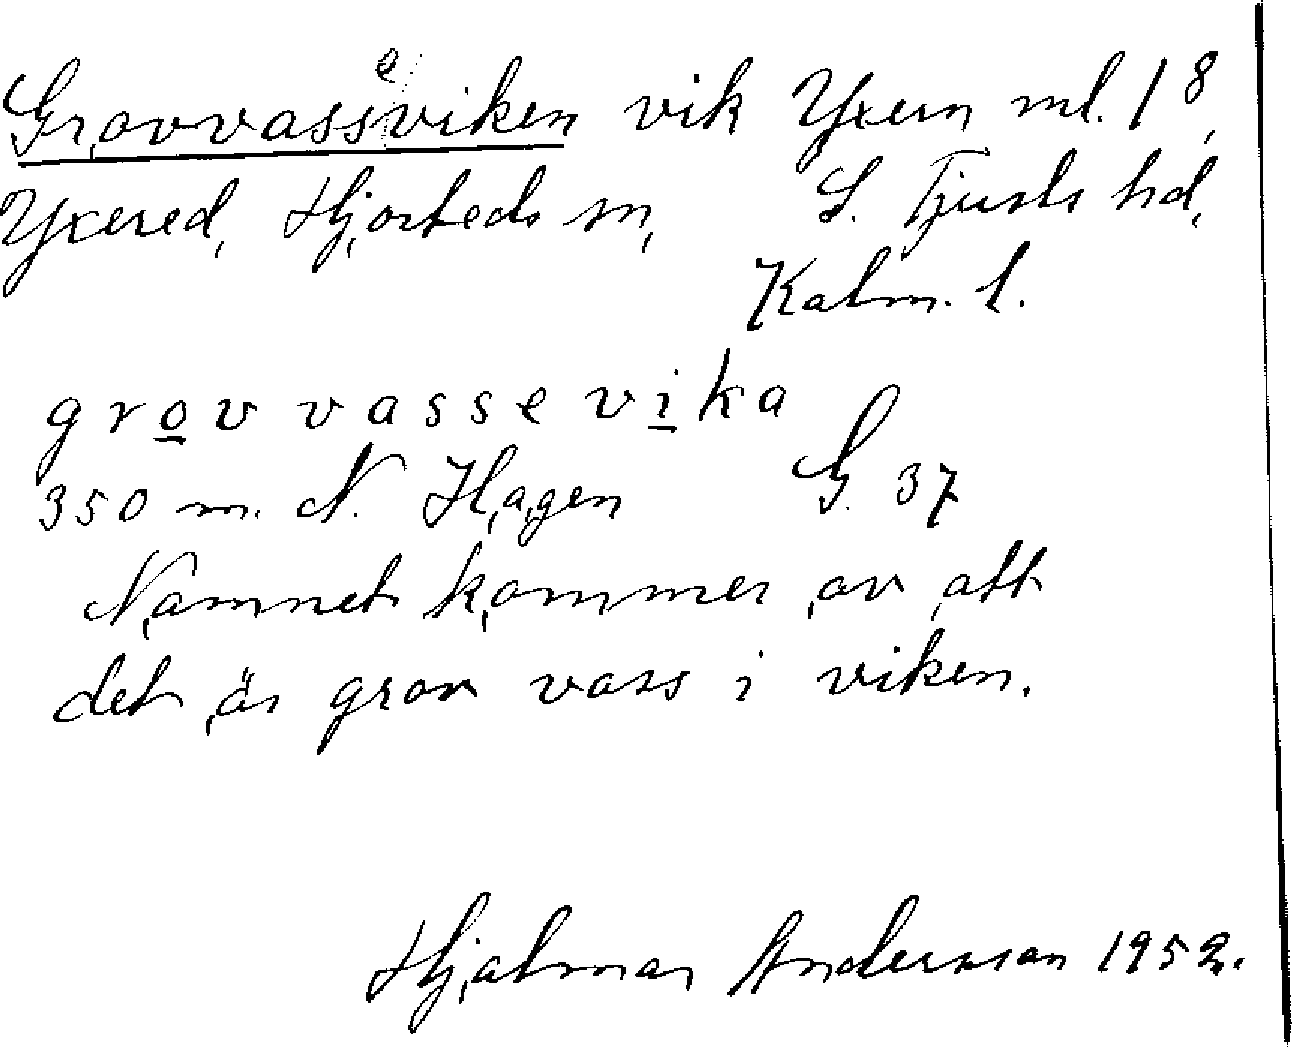 Grovvasseviken vik Yxern ml. 18,
Yxered, Hjorteds sn, S. Tjusts hd,
Kalm. l.
grovvassevika
350 m. N. Hagen G. 37
Namnet kommer av att
det är grov vass i viken.
Hjalmar Andersson 1952.